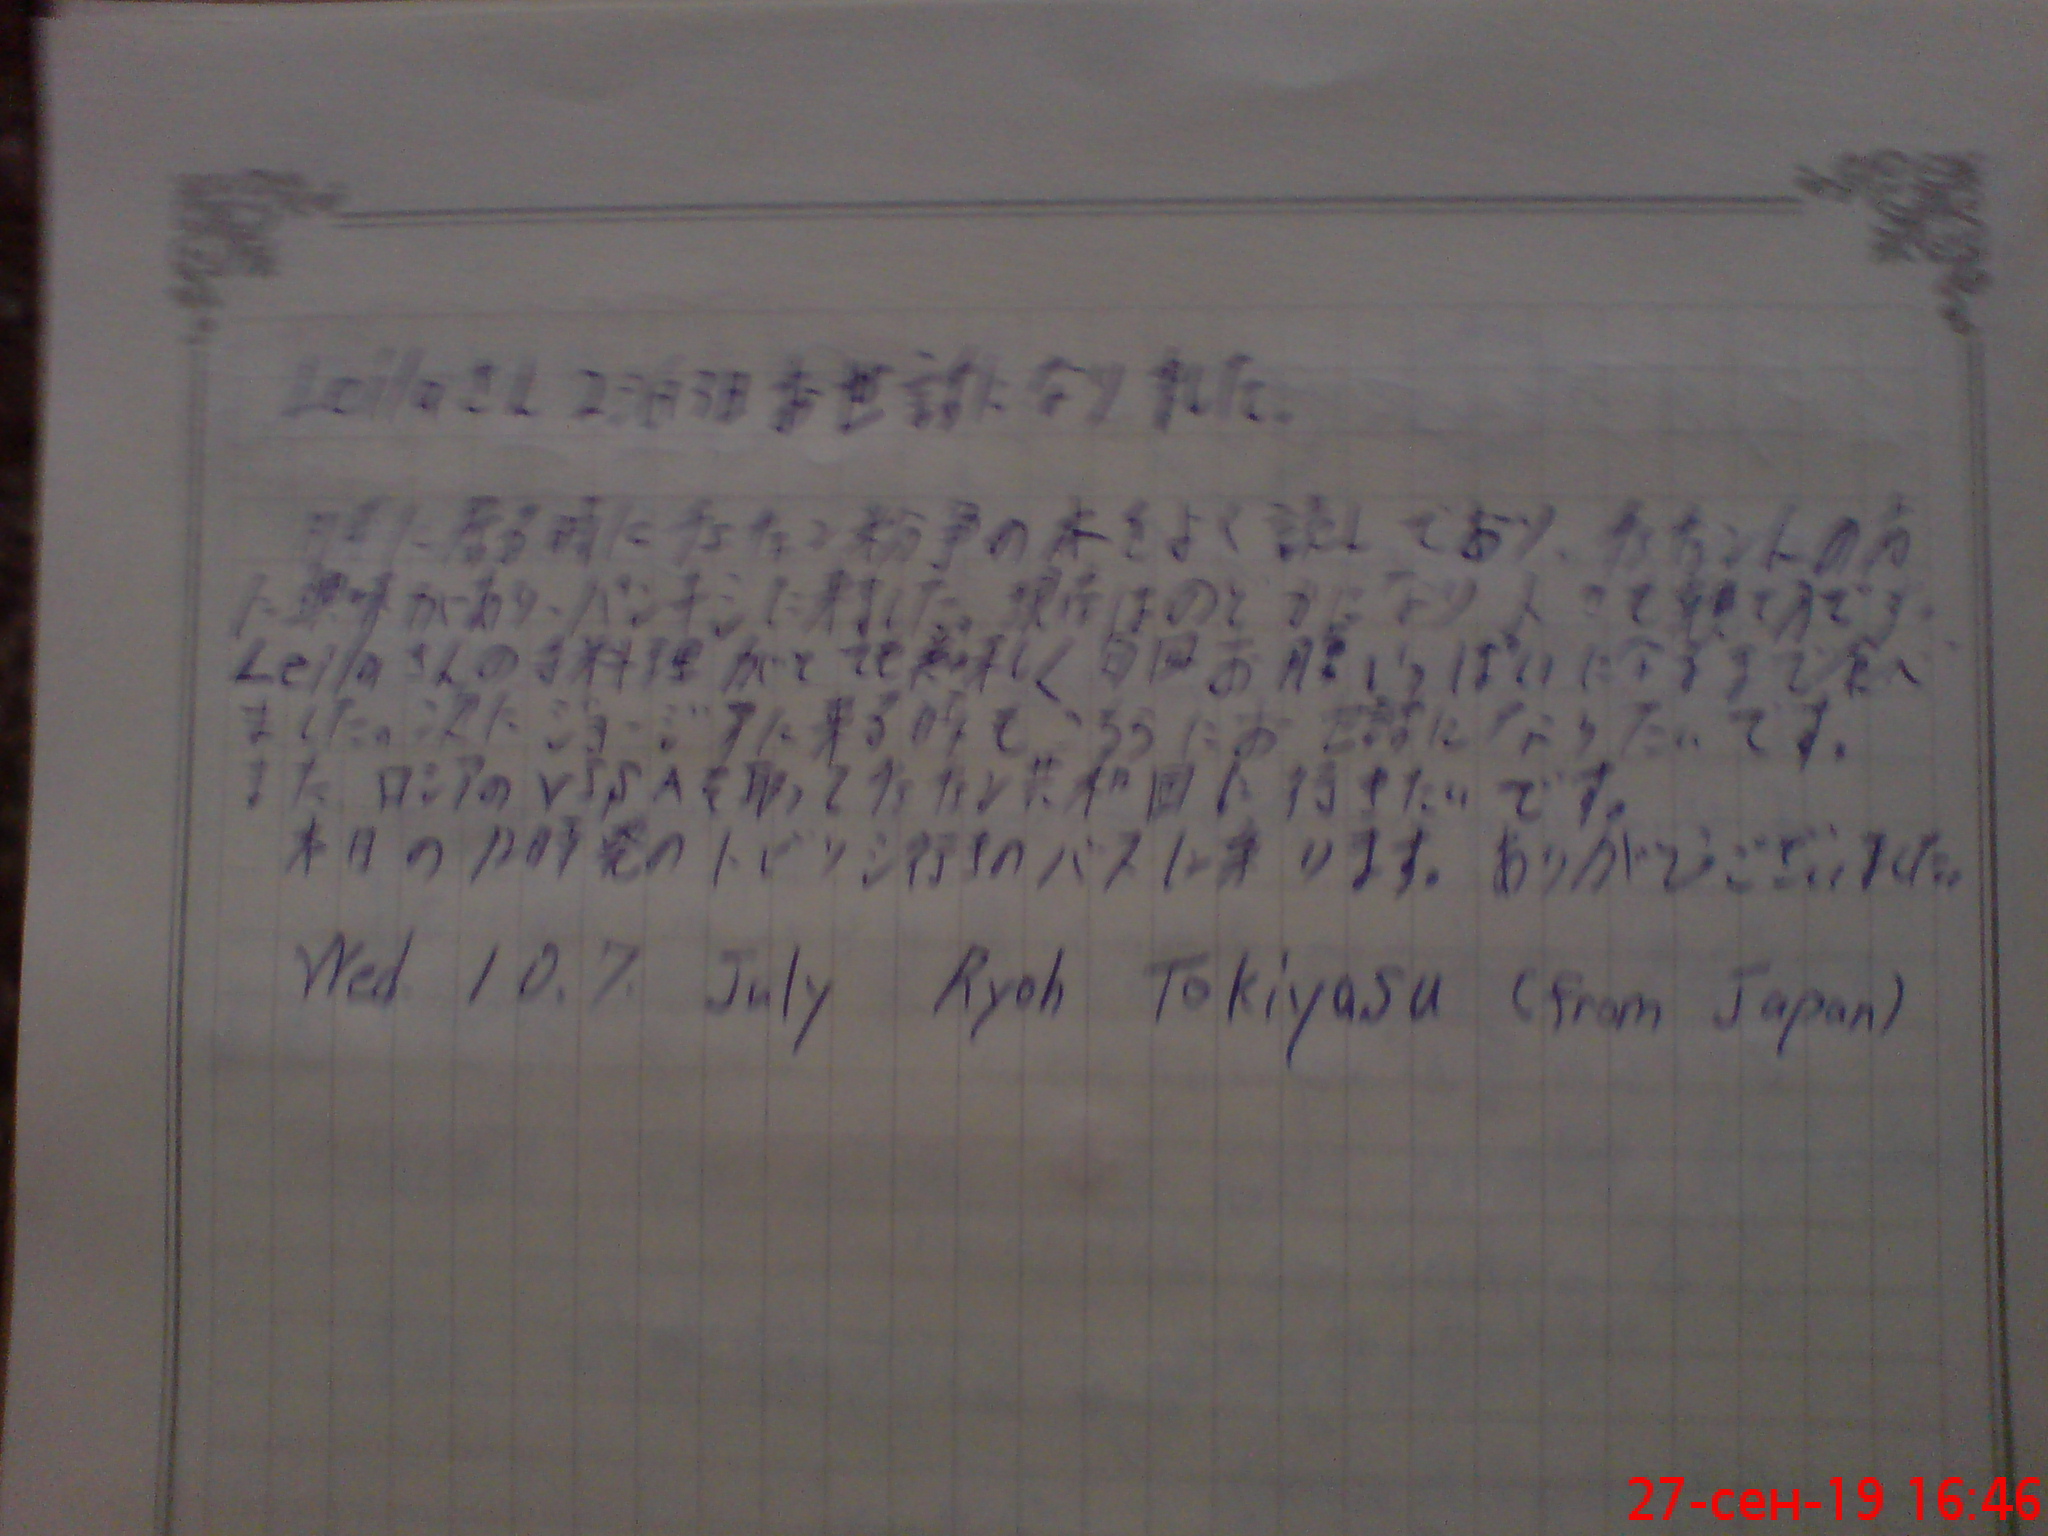 Leilaさん2泊3日お世話になりました。
時にチェチェン紛争の本をよく読んでおり、チェチェンの方
に興味があり、パンキシに来ました。現在はのどかになり
Leilaさんの手料理がとても美味しく毎回お腹いっぱいになるまで食べ
ました。次にジョージアに来る時もこちらにお世話になりたいです。
またロシアのVISAを取ってチェチェン共和国に行きたいです。
本日の 時発のトビリシ行きのバスに乗ります。ありがとうございました。
Wed 10.7. July Ryoh Tokiyasu (from Japan)
27-сен-19 16:46